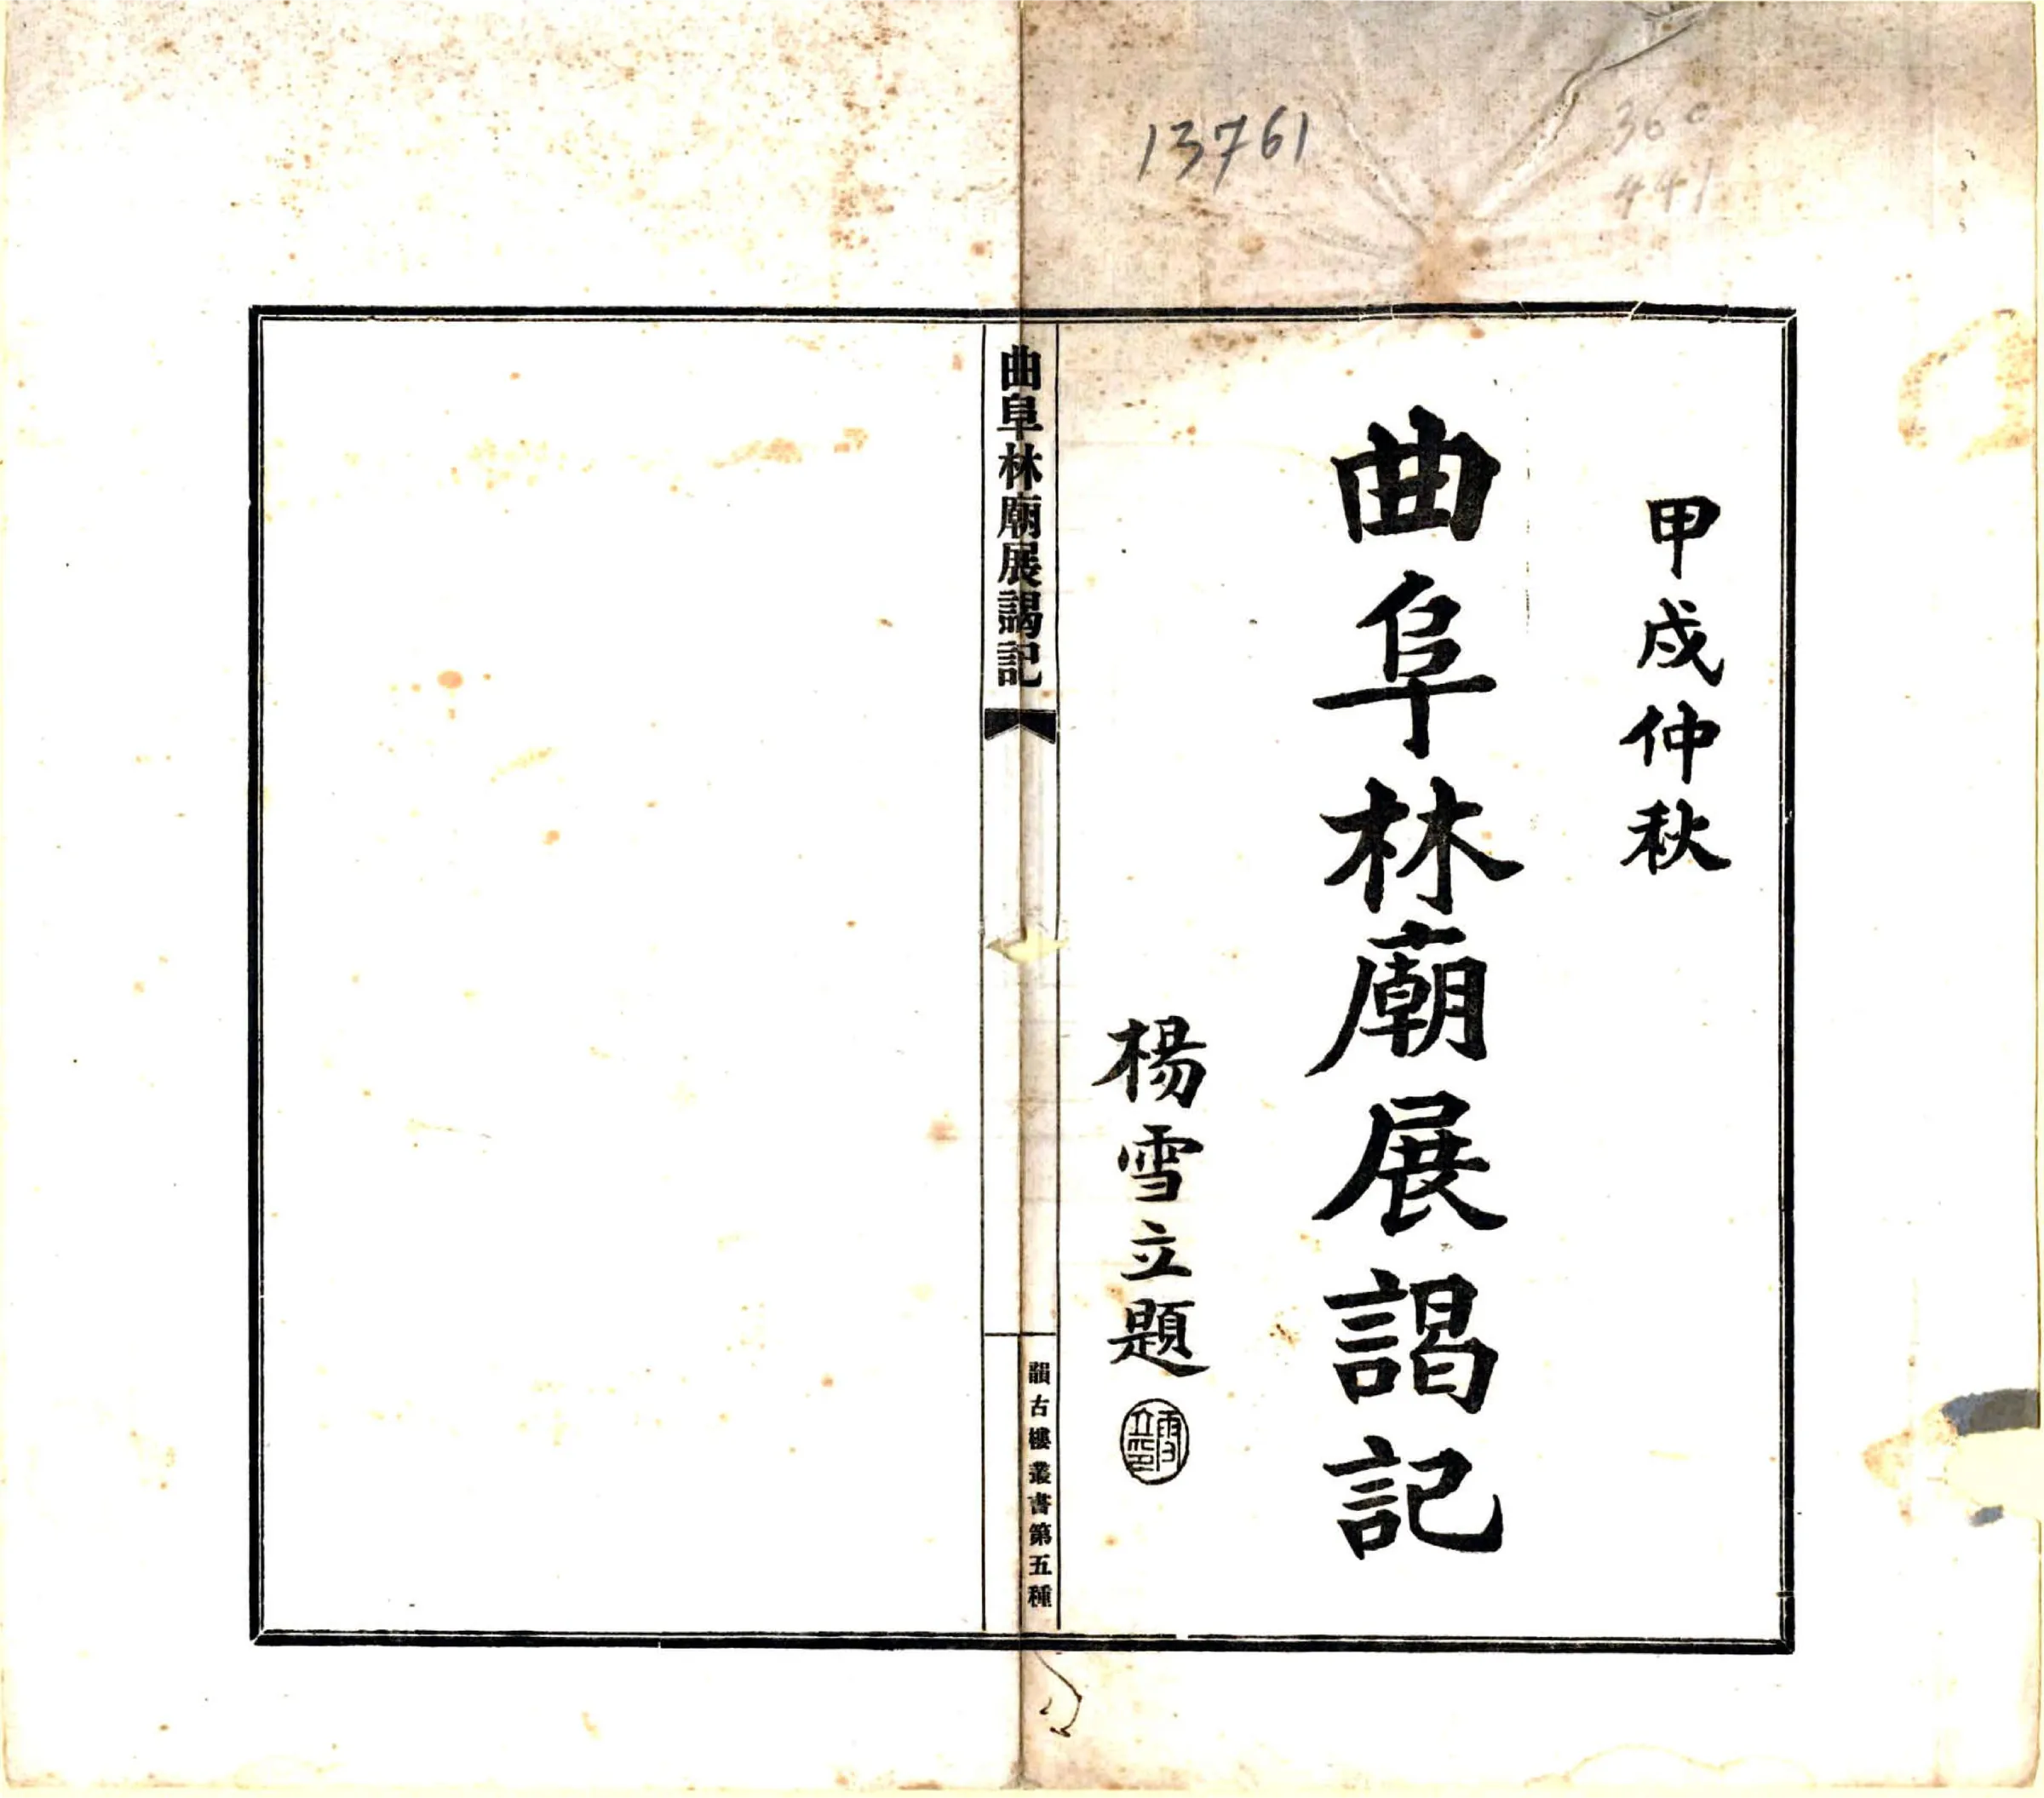 13761
360
441
甲戌仲秋
曲阜林廟展謁記
楊雪立題
曲阜林廟展謁記
韻古樓叢書第五種